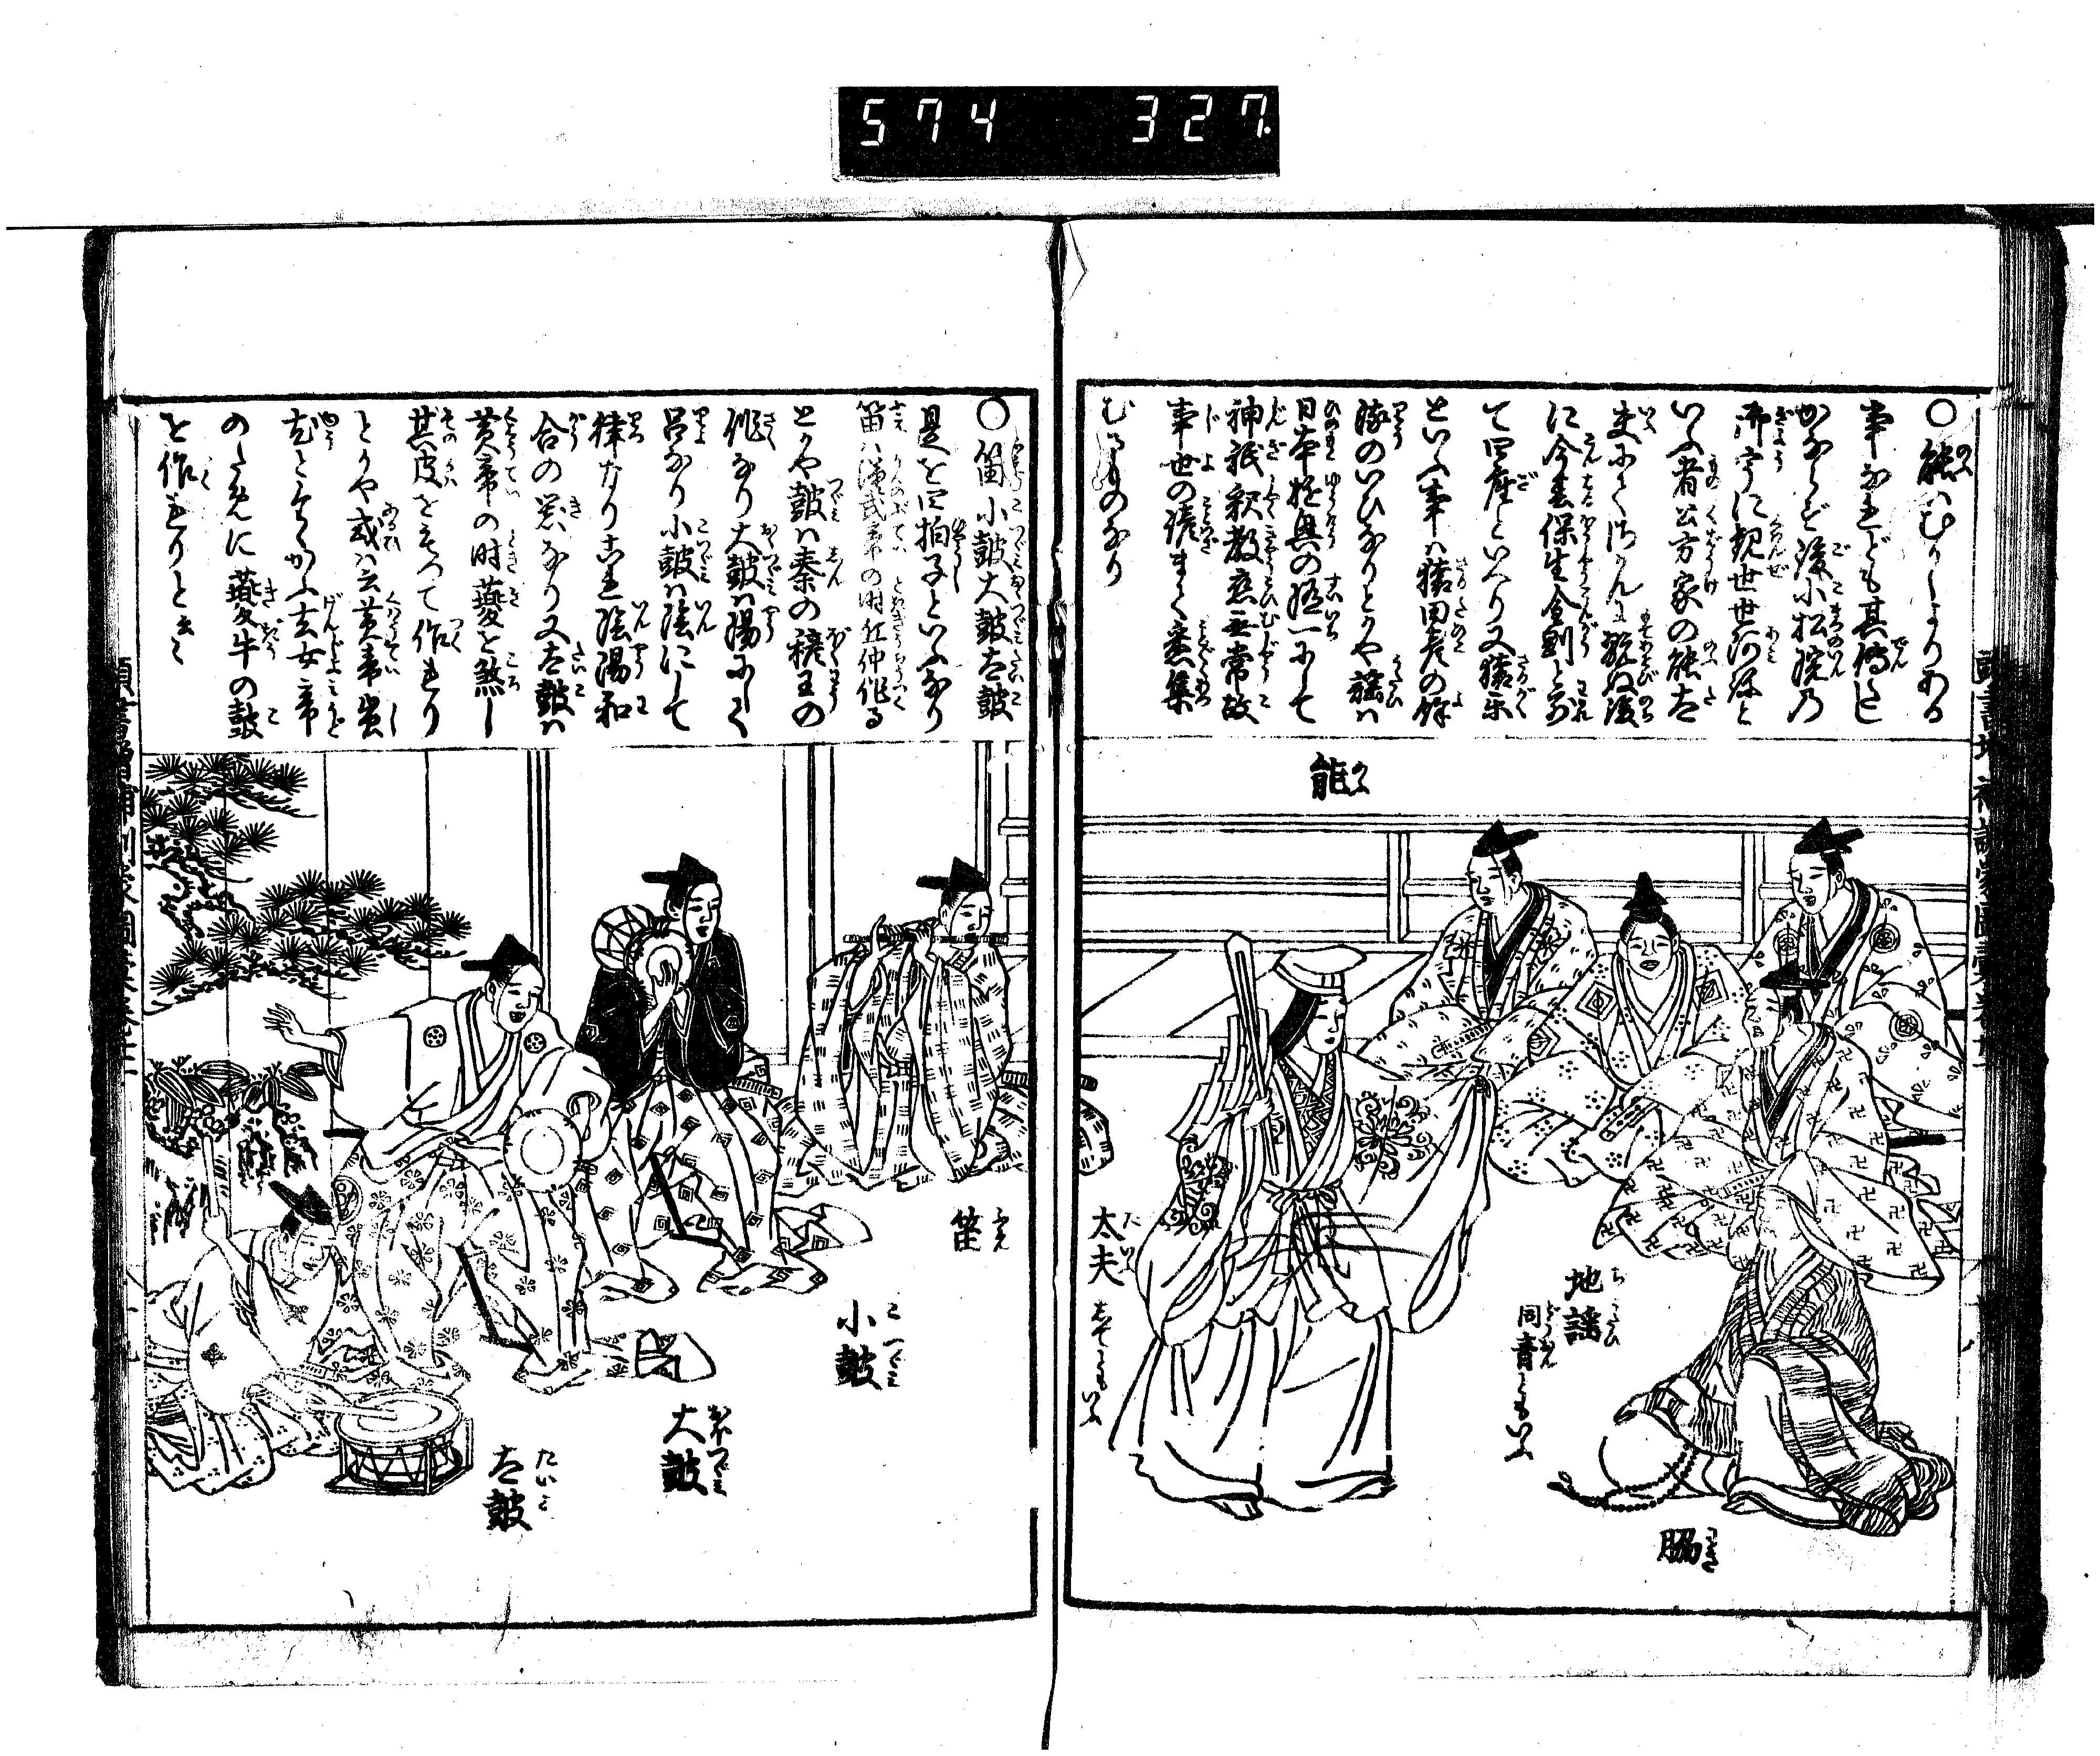 574 327
○能ハむかしよりある
事なれども其傳さだ
かならず後小松院乃
御宇に観世世阿弥と
いふ者公方家の能太
に今春保生金剛とわ
て四座といへり又猿樂
といふ事ハ猿田彦の餘
流のいひなりとかや謡ハ
日本遊興の随一にして
神祇釈教恋無常故
事世の諺まで悉集
むるものなり
能 のふ
太夫 たいふ
してともいふ
地謡 ぢうたひ
同音ともいふ
脇 わき
○笛小鼓大鼓太鼓
是を四拍子といふなり
笛ハ漢武帝の時丘仲作る
とかや鼓ハ秦の穆王の
作なり大鼓ハ陽にして
呂なり小鼓ハ陰にして
律なりこれ陰陽和
合の器なり又太鼓ハ
黄帝の時夔を煞し
其皮をもつて作れり
とかや或ハ云黄帝蚩
尤とたゝかふ玄女帝
のために夔牛の鼓
を作れりとぞ
笛 ふえ
小鼓 こつゞみ
大鼓 おほつゞみ
太鼓 たいこ